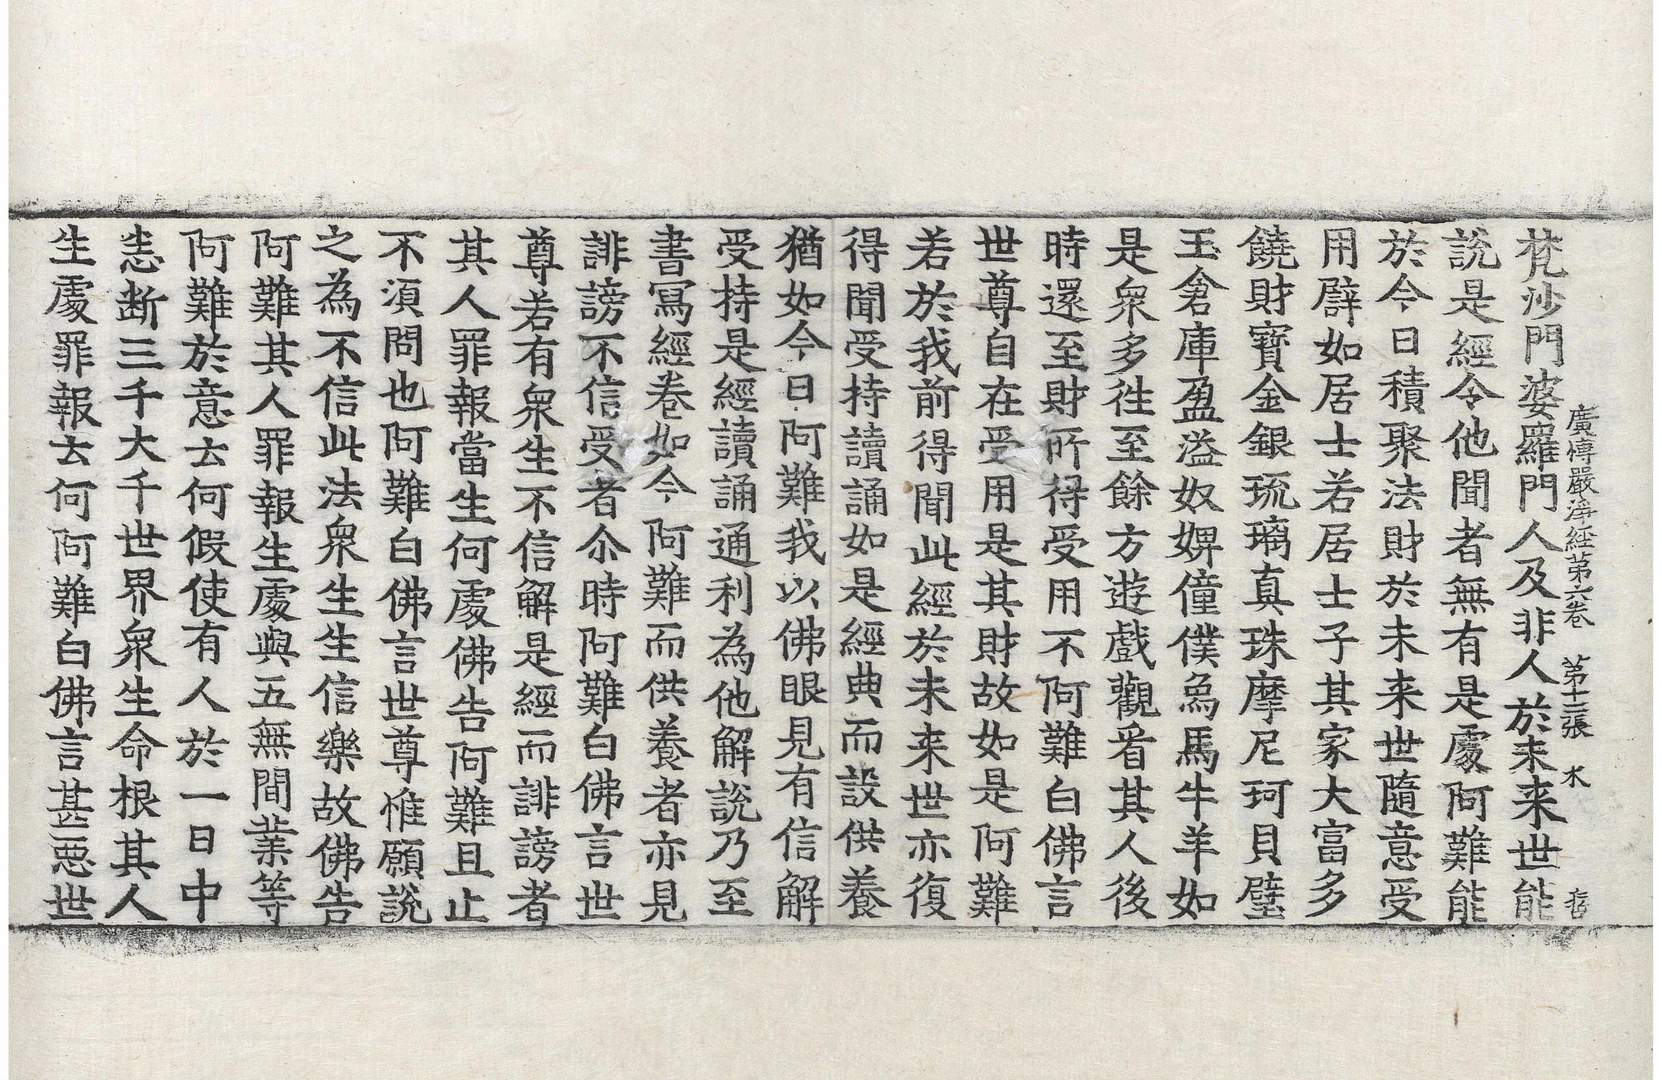 廣博嚴淨經第六卷　第十二張　水
梵沙門婆羅門人及非人於未来世能
說是經令他聞者無有是處阿難能
於今日積聚法財於未来世隨意受
用辟如居士若居士子其家大富多
饒財寶金銀琉璃真珠摩尼珂貝璧
玉倉庫盈溢奴婢僮僕烏馬牛羊如
是衆多徃至餘方遊戲觀看其人後
時還至財所得受用不阿難白佛言
世尊自在受用是其財故如是阿難
若於我前得聞此經於未来世亦復
得聞受持讀誦如是經典而設供養
猶如今日阿難我以佛眼見有信解
受持是經讀誦通利為他解說乃至
書寫經卷如今阿難而供養者亦見
誹謗不信受者尒時阿難白佛言世
尊若有衆生不信解是經而誹謗者
其人罪報當生何處佛告阿難且止
不湏問也阿難白佛言世尊惟願說
之為不信此法衆生生信樂故佛告
阿難其人罪報生處與五無間業等
阿難於意去何假使有人於一日中
恚断三千大千世界衆生命根其人
生處罪報去何阿難白佛言甚惡世